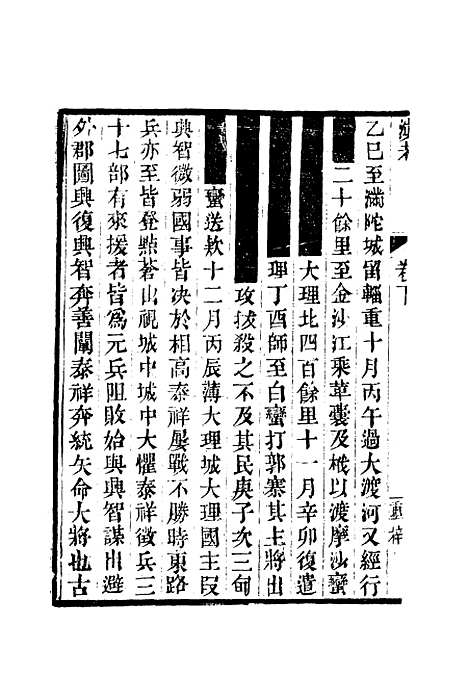 滇考
卷下
乙巳至滿陀城留輜重十月丙午過大渡河又經行
二十餘里至金沙江乘革囊及栰以渡摩沙蠻
大理北四百餘里十一月辛卯復遣
理丁酉師至白蠻打郭寨其主將出
攻拔殺之不及其民庚子次三甸
蠻送款十二月丙辰薄大理城大理國主段
興智微弱國事皆决於相高泰祥屢戰不勝時東路
兵亦至皆登點蒼山視城中城中大懼泰祥徵兵三
十七部有來援者皆為元兵阻敗始與興智謀出避
外郡圖興復興智奔善闡泰祥奔統矢命大將也古